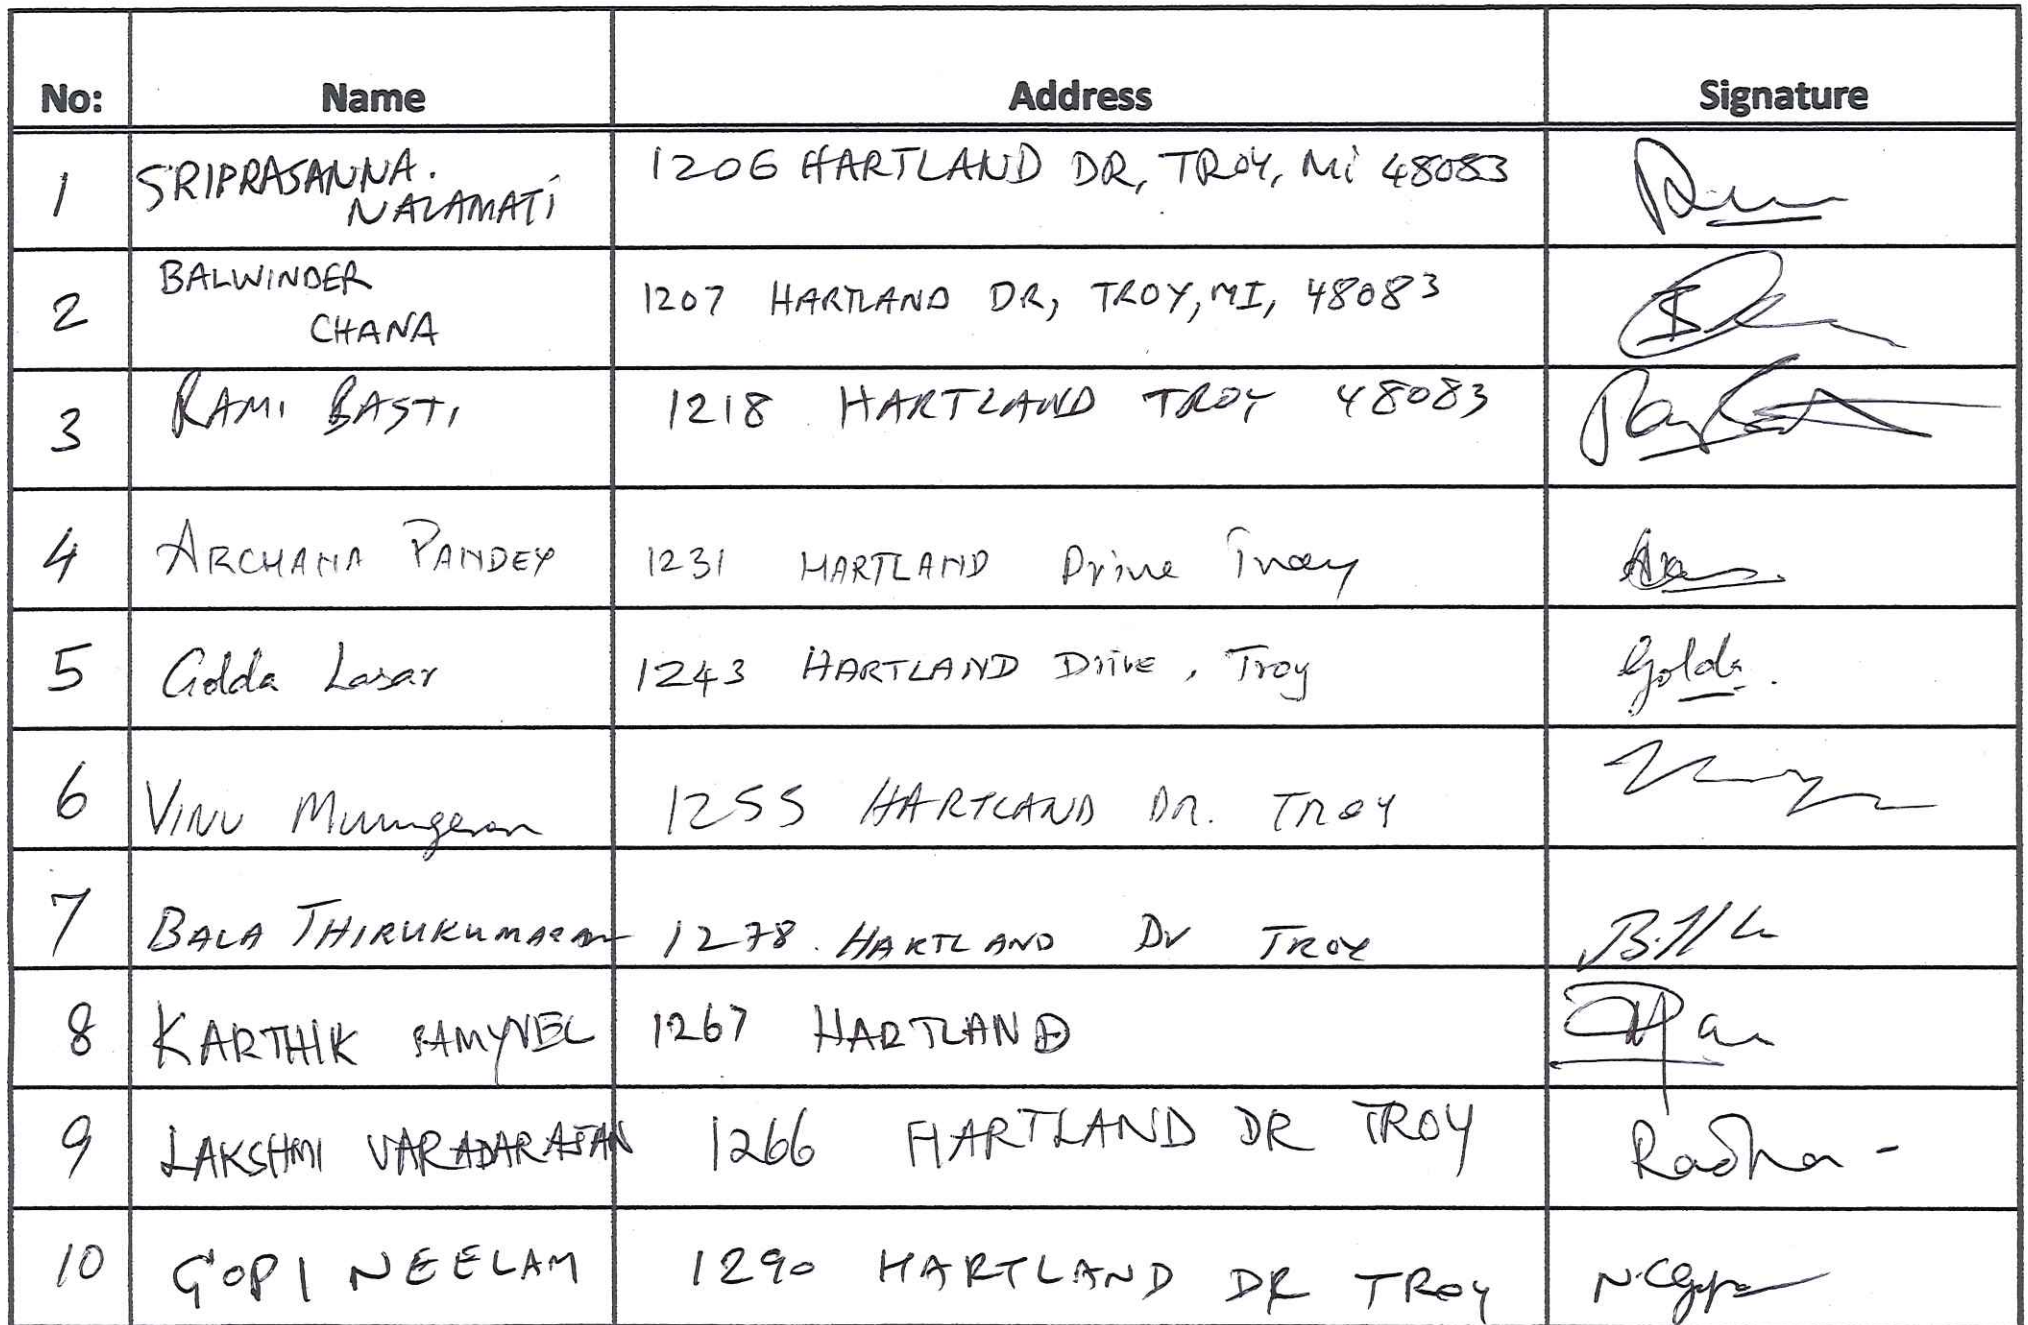 No: Name Address Signature
1 SRIPRASANNA. 1206 HARTLAND DR, TROY, Mi 48083
NALAMATI
2 BALWINDER 1207 HARTLAND DR, TROY, MI, 48083
CHANA
3 RAMI BASTI 1218 HARTLAND TROY 48083
4 ARCHANA PANDEY 1231 HARTLAND Drive Troy
5 Golda Lasar 1243 HARTLAND Drive, Troy Golda.
6 VINU Murugesan 1255 HARTLAND DR. TROY
7 BALA THIRUKUMARAN 1278. HARTLAND Dr TROY
8 KARTHIK SAMYVEL 1267 HARTLAND
9 LAKSHMI VARADARAJAN 1266 HARTLAND DR TROY Radha -
10 GOPI NEELAM 1290 HARTLAND DR TROY